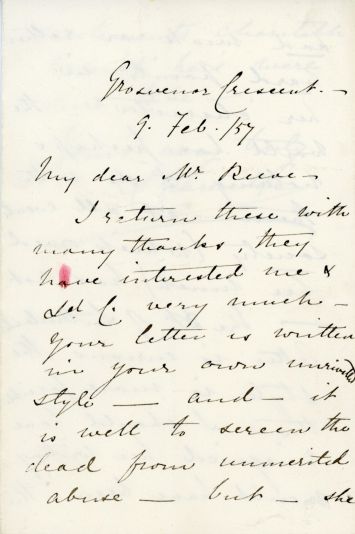 Grosvenor Crescent. —
9. Feb. /57
My dear Mr Reeve —
I return these with
many thanks, they
have interested me &
Ld C. very much —
your letter is written
in your own unrivalled
style — and — it
is well to screen the
dead from unmerited
abuse — but — she